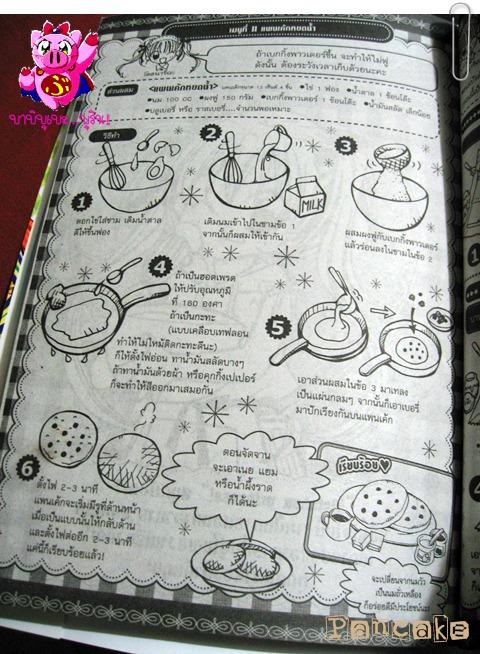 เมนูที่ 8 แพนเค้กหยดน้ำ
ถ้าเบกกิ้งพาวเดอร์ชื้น จะทำให้ไม่ฟู
ดังนั้น ต้องระวังเวลาเก็บด้วยนะคะ
ส่วนผสม
<แพนเค้กหยดน้ำ> แพนเค้กขนาด 12 เซ็นติ 4 ชิ้น • ไข่ 1 ฟอง • น้ำตาล 1 ช้อนโต๊ะ
•นม 100 cc •ผงฟู 150 กรัม •เบกกิ้งพาวเดอร์ 1 ช้อนโต๊ะ •น้ำมันสลัด เล็กน้อย
•บลูเบอรี่ หรือ ราสเบอรี่....จำนวนพอเหมาะ
วิธีทำ
1
ตอกไข่ใส่ชาม เติมน้ำตาล
ตีให้ขึ้นฟอง
2
MILK
เติมนมเข้าไปในชามข้อ 1
จากนั้นก็ผสมให้เข้ากัน
3
ผสมผงฟูกับเบกกิ้งพาวเดอร์
แล้วร่อนลงในชามในข้อ 2
4
ถ้าเป็นฮอตเพรต
ให้ปรับอุณหภูมิ
ที่ 160 องศา
ถ้าเป็นกะทะ
(แบบเคลือบเทฟลอน
ทำให้ไม่ไหม้ติดกะทะดีนะ)
ก็ให้ตั้งไฟอ่อน ทาน้ำมันสลัดบางๆ
ถ้าทาน้ำมันด้วยผ้า หรือคุกกิ้งเปเปอร์
ก็จะทำให้สีออกมาเสมอกัน
5
เอาส่วนผสมในข้อ 3 มาเทลง
เป็นแผ่นกลมๆ จากนั้นก็เอาเบอรี่
มาปักเรียงกันบนแพนเค้ก
6
ตั้งไฟ 2-3 นาที
แพนเค้กจะเริ่มมีรูที่ด้านหน้า
เมื่อเป็นแบบนั้นให้กลับด้าน
และตั้งไฟต่ออีก 2-3 นาที
แค่นี้ก็เรียบร้อยแล้ว!
ตอนจัดจาน
จะเอาเนย แยม
หรือน้ำผึ้งราด
ก็ได้นะ
เรียบร้อย♥
จะเปลี่ยนจากนมวัว
เป็นนมถั่วเหลือง
ก็อร่อยดีมีประโยชน์นะ!
Pancake